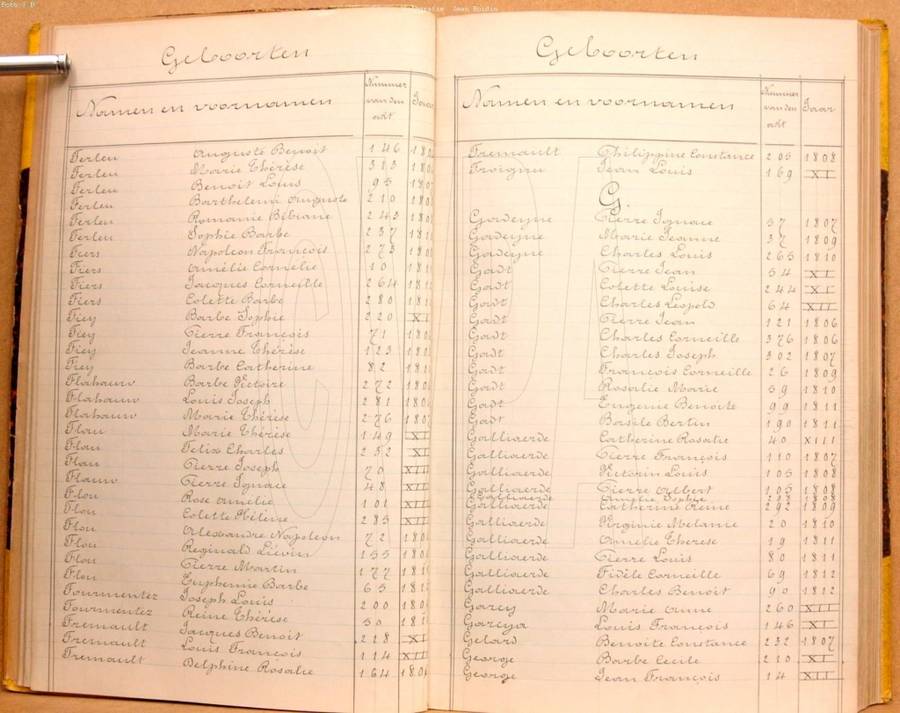 Geboorten
Namen en voornamen Nummer van den akt Jaar
Ferleu Auguste Benoit 146
Ferleu Marie Thérèse 383
Ferleu Benoit Louis 95
Ferleu Barthelemi Auguste 210
Ferleu Romanie Bibiane 243
Ferleu Sophie Barbe 237
Fiers Napoleon Francois 273
Fiers Amélie Cornélie 10
Fiers Jacques Corneille 264
Fiers Colette Barbe 280
Fiey Barbe Sophie 220 XI
Fiey Pierre François 71
Fiey Jeanne Thérèse 123
Fiey Barbe Catherine 82
Flahauw Barbe Victoire 272
Flahauw Louis Joseph 281
Flahauw Marie Thérèse 276 1807
Flau Marie Thérèse 149 XI
Flau Felix Charles 252 XI
Flau Pierre Joseph 70 XII
Flauw Pierre Ignace 48 XII
Flou Rose Amélie 101 XII
Flou Colette Hélène 285 XII
Flou Alexandre Napoleon 72
Flou Reginald Liévin 155
Flou Pierre Martin 177
Flou Euphemie Barbe 65
Fourmentez Joseph Louis 200
Fourmentez Reine Thérèse 50
Fremault Jacques Benoit 228 XI
Fremault Louis François 114 XII
Fremault Delphine Rosalie 164
Geboorten
Namen en voornamen Nummer van den akt Jaar
Fremault Philippine Constance 205 1808
Froigiru Jean Louis 169 XI
G.
Gadeyne Pierre Ignace 37 1807
Gadeyne Marie Jeanne 37 1809
Gadeyne Charles Louis 265 1810
Gadt Pierre Jean 54 XI
Gadt Colette Louise 244 XI
Gadt Charles Leopold 64 XII
Gadt Pierre Jean 121 1806
Gadt Charles Corneille 376 1806
Gadt Charles Joseph 302 1807
Gadt François Corneille 26 1809
Gadt Rosalie Marie 59 1810
Gadt Eugenie Benoite 99 1811
Gadt Basile Bertin 190 1811
Galliaerde Catherine Rosalie 40 XIII
Galliaerde Pierre François 110 1807
Galliaerde Victorin Louis 105 1808
Galliaerde Pierre Albert 105 1808
Galliaerde Sophie 1808
Galliaerde Catherine Reine 292 1809
Galliaerde Virginie Melanie 20 1810
Galliaerde Amélie Therese 19 1811
Galliaerde Pierre Louis 80 1811
Galliaerde Fidèle Corneille 69 1812
Galliaerde Charles Benoit 90 1812
Garcy Marie Anne 260 XII
Garcya Louis François 146 XI
Gelard Benoite Constance 232 1807
George Barbe Cecile 210 XI
George Jean François 14 XII